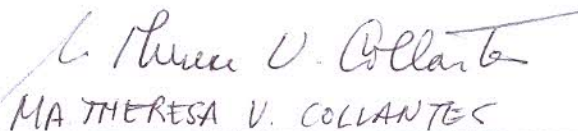 Ma Theresa V. Collantes
MA THERESA V. COLLANTES